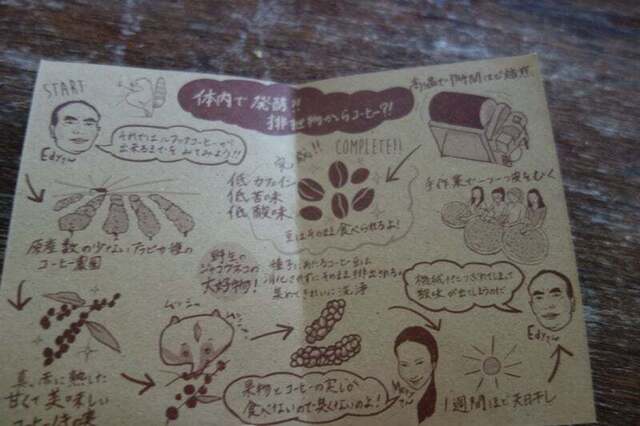 START
体内で発酵!!
排泄物からコーヒー?!
高温で1時間ほど焙煎
それではルアックコーヒーが
出来るまでをみてみよう!!
Edyさん
COMPLETE!!
低カフェイン
低苦味
低酸味
豆はそのまま食べられるよ!
手作業で一つ一つ皮をむく
原産数の少ないアラビカ種の
コーヒー農園
野生の
ジャコウネコの
大好物!
種子にあたるコーヒー豆は
消化されずにそのまま排出される。
集めてきれいに洗浄
機械だと
酸味が出てしまうのだ
Edyさん
真っ赤に熟した
甘くて美味しい
ムシャ
果物とコーヒーの実しか
食べないので臭くないのよ!
Meryさん
1週間ほど天日干し